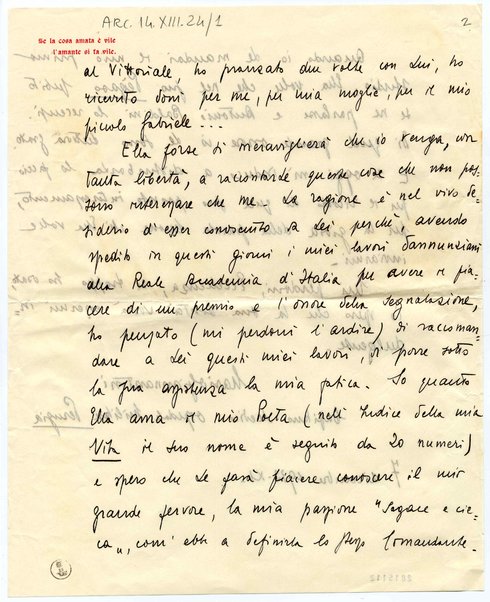 ARC. 14. XIII. 24/1
2.
Se la cosa amata è vile
l'amante si fa vile.
al Vittoriale, ho pranzato due volte con Lui, ho
ricevuto doni per me, per mia moglie, per il mio
piccolo Gabriele...
Ella forse si meraviglierà che io venga, con
tanta libertà, a raccontarle queste cose che non pos-
sono interessare che me. La ragione è nel vivo de-
siderio d'esser conosciuto da Lei perchè avendo
spedito in questi giorni i miei lavori dannunziani
alla Reale Accademia d'Italia per avere il pia-
cere di un premio e l'onore della segnalazione,
ho pensato (mi perdoni l'ardire) di raccoman-
dare a Lei questi miei lavori, di porre sotto
la Sua assistenza la mia fatica. So quanto
Ella ama il mio Poeta (nell'Indice della mia
Vita il Suo nome è seguito da 20 numeri)
e spero che Le farà piacere conoscere il mio
grande fervore, la mia passione "sagace e cie-
ca", com'ebbe a definirla lo stesso Comandante.
2015112